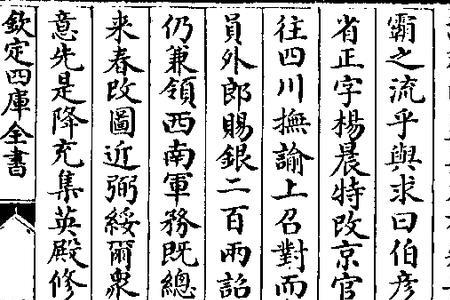 霸之流乎與求曰伯彦
省正字楊晨特改京官
往四川撫諭上召對而
員外郎賜銀二百兩詔
仍兼領西南軍務既總
来春改圖近弼綏爾衆
意先是降充集英殿修
欽定四庫全書